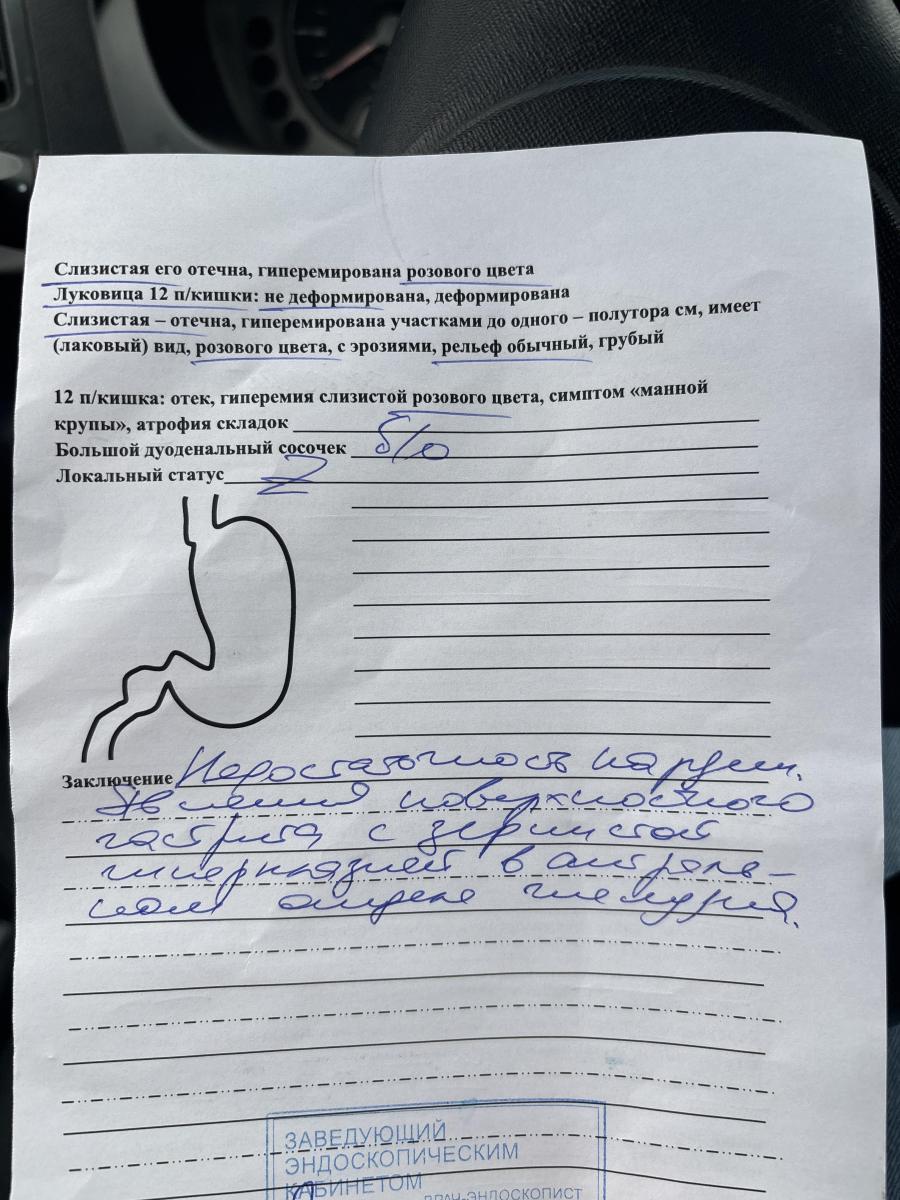 Слизистая его отечна, гиперемирована розового цвета
Луковица 12 п/кишки: не деформирована, деформирована
Слизистая – отечна, гиперемирована участками до одного – полутора см, имеет
(лаковый) вид, розового цвета, с эрозиями, рельеф обычный, грубый
12 п/кишка: отек, гиперемия слизистой розового цвета, симптом «манной
крупы», атрофия складок
Большой дуоденальный сосочек б/о
Локальный статус
Заключение Недостаточность кардии.
Явления поверхностного
гастрита с зернистой
гиперплазией в антраль-
ном отделе желудка.
ЗАВЕДУЮЩИЙ
ЭНДОСКОПИЧЕСКИМ
КАБИНЕТОМ
ВРАЧ-ЭНДОСКОПИСТ